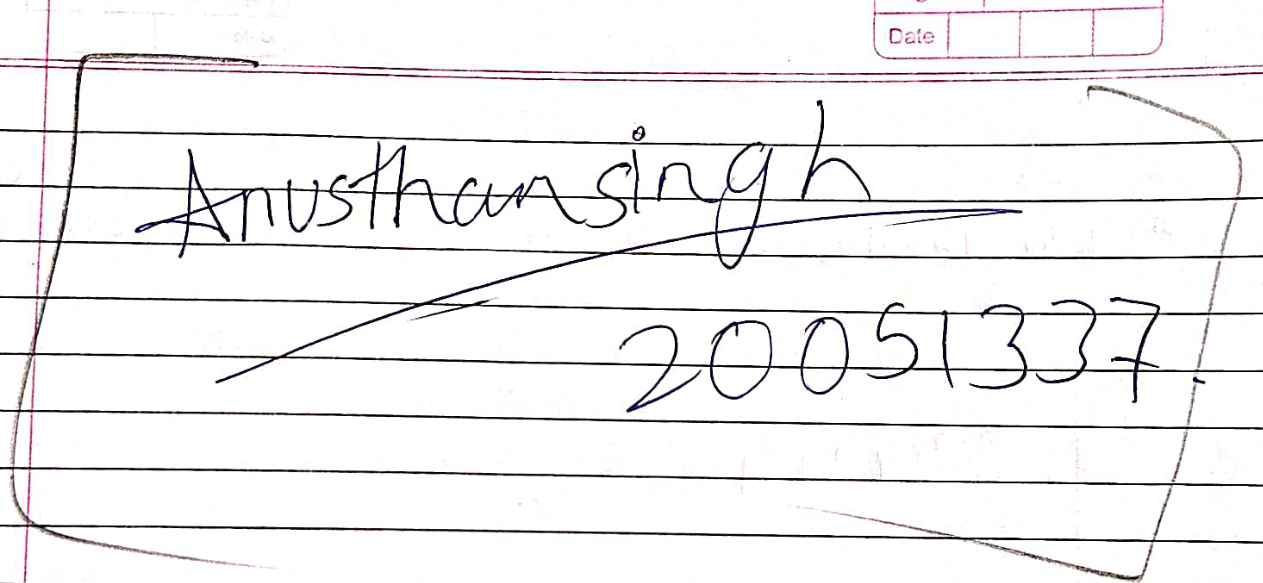 Date
Anusthansingh
20051337.